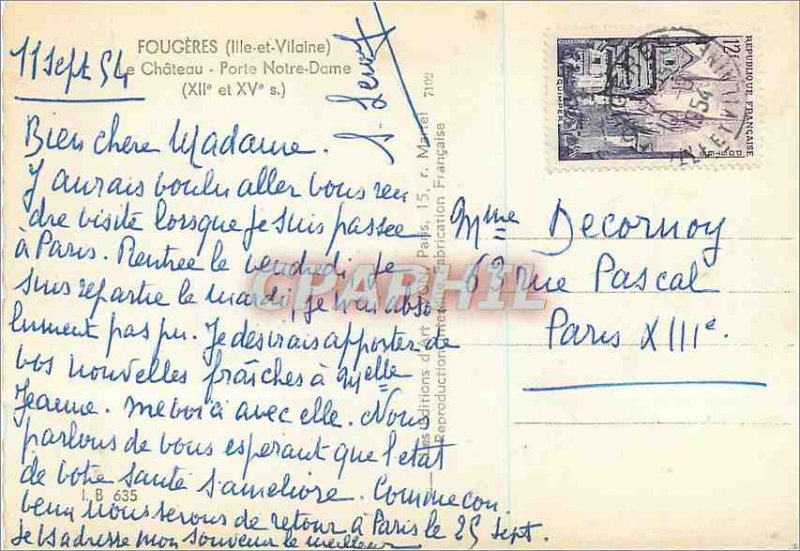 FOUGÈRES (Ille-et-Vilaine)
Le Château - Porte Notre-Dame
(XIIe et XVe s.)
11 Sept 54
Bien chère Madame.
J'aurais voulu aller vous ren
dre visite lorsque je suis passée
à Paris. Rentrée le vendredi je
suis repartie le mardi, je n'ai abso
lument pas pu. Je désirais apporter de
vos nouvelles fraîches à Melle
Jeanne. me voici avec elle. Nous
parlons de vous espérant que l'état
de votre santé s'améliore. Comme con
venu nous serons de retour à Paris le 25 Sept.
Je vs adresse mon souvenir le meilleur
I. B 635
Les Editions d'Art, Paris, 15, r. Martel 7102
Reproduction Interdite Fabrication Française
CPAPHIL
12F
REPUBLIQUE FRANÇAISE
POSTES
QUIMPER
54
ILLE ET VILAINE
Mme Decornoy
63 rue Pascal
Paris XIIIe.